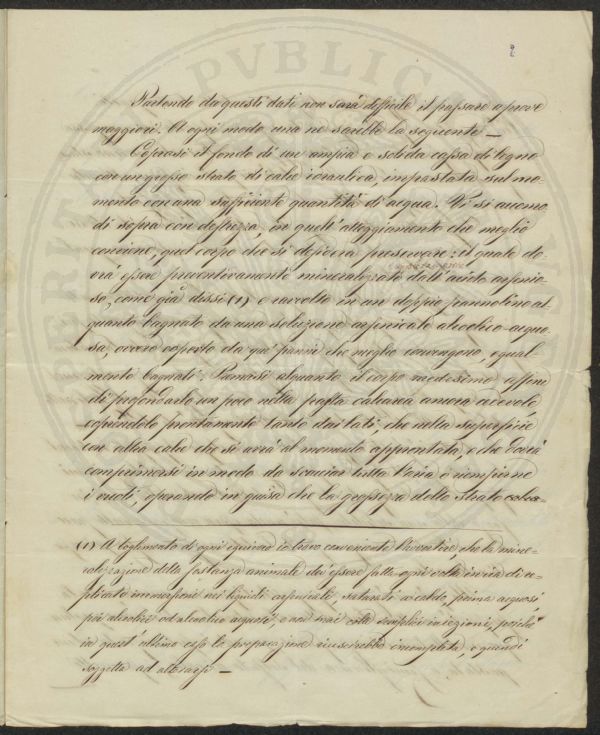 2
Partendo da questi dati non sarà difficile il passare a prove
maggiori. A ogni modo una ne sarebbe la seguente —
Coprasi il fondo di un ampia e solida cassa di legno
con un grosso strato di calce idraulica, impastata sul mo-
mento con una sufficiente quantità di acqua. Vi si accomo
di sopra con destrezza, in quell' atteggiamento che meglio
conviene, quel corpo che si desidera preservare: il quale do-
vrà essere preventivamente mineralizzato dall' acido arsenio-
so, come già dissi (1) e ravvolto in un doppio pannolino al-
quanto bagnato da una soluzione arsenicale alcoolico-acquo-
sa, ovvero coperto da que' panni che meglio convengono, egual-
mente bagnati. Premasi alquanto il corpo medesimo affine
di profondarlo un poco nella pasta calcarea ancora cedevole,
coprendolo prontamente tanto dai lati, che nella superficie
con altra calce che si avrà al momento approntata, e che dovrà
comprimersi in modo da scacciar tutta l'aria e riempirne
i vuoti, operando in guisa che la grossezza dello strato calca-
(1) A toglimento di ogni equivoco io trovo conveniente l'avvertire, che la mine-
ralizzazione della sostanza animale dev' essere fatta ogni volta in via di re-
plicate immersioni nei liquidi arsenicali, saturati a caldo, prima acquosi
poi alcoolici od alcoolico acquosi, e non mai colle semplici iniezioni, poichè
in quest' ultimo caso la preparazione riuscirebbe incompleta, e quindi
soggetta ad alterarsi —
PVBLICA